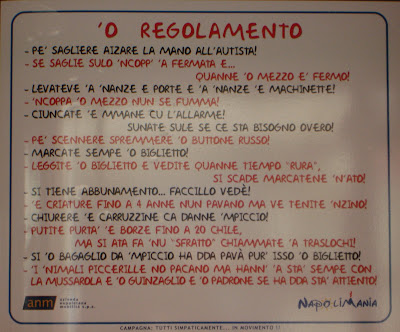 'O REGOLAMENTO
- PE' SAGLIERE AIZARE LA MANO ALL'AUTISTA!
- SE SAGLIE SULO 'NCOPP' 'A FERMATA E...
QUANNE 'O MEZZO E' FERMO!
- LEVATEVE 'A 'NANZE E PORTE E 'A 'NANZE 'E MACHINETTE!
- 'NCOPPA 'O MEZZO NUN SE FUMMA!
- CIUNCATE 'E MMANE CU L'ALLARME!
SUNATE SULE SE CE STA BISOGNO OVERO!
- PE' SCENNERE SPREMMERE 'O BUTTONE RUSSO!
- MARCATE SEMPE 'O BIGLIETTO!
- LEGGITE 'O BIGLIETTO E VEDITE QUANNE TIEMPO "RURA",
SI SCADE MARCATENE 'N'ATO!
- SI TIENE ABBUNAMENTO... FACCILLO VEDÈ!
- 'E CRIATURE FINO A 4 ANNE NUN PAVANO MA VE TENITE 'NZINO!
- CHIURERE 'E CARRUZZINE CA DANNE 'MPICCIO!
- PUTITE PURTA' 'E BORZE FINO A 20 CHILE,
MA SI ATA FA 'NU "SFRATTO" CHIAMMATE 'A TRASLOCHI!
- SI 'O BAGAGLIO DA 'MPICCIO HA DDA PAVÀ PUR' ISSO 'O BIGLIETTO!
- 'I 'NIMALI PICCERILLE NO PACANO MA HANN' 'A STA' SEMPE CON
LA MUSSAROLA E 'O GUINZAGLIO E 'O PADRONE SE HA DDA STA' ATTIENTO!
anm azienda napoletana mobilità s.p.a.
NAPOLIMANIA
CAMPAGNA: TUTTI SIMPATICAMENTE... IN MOVIMENTO !!